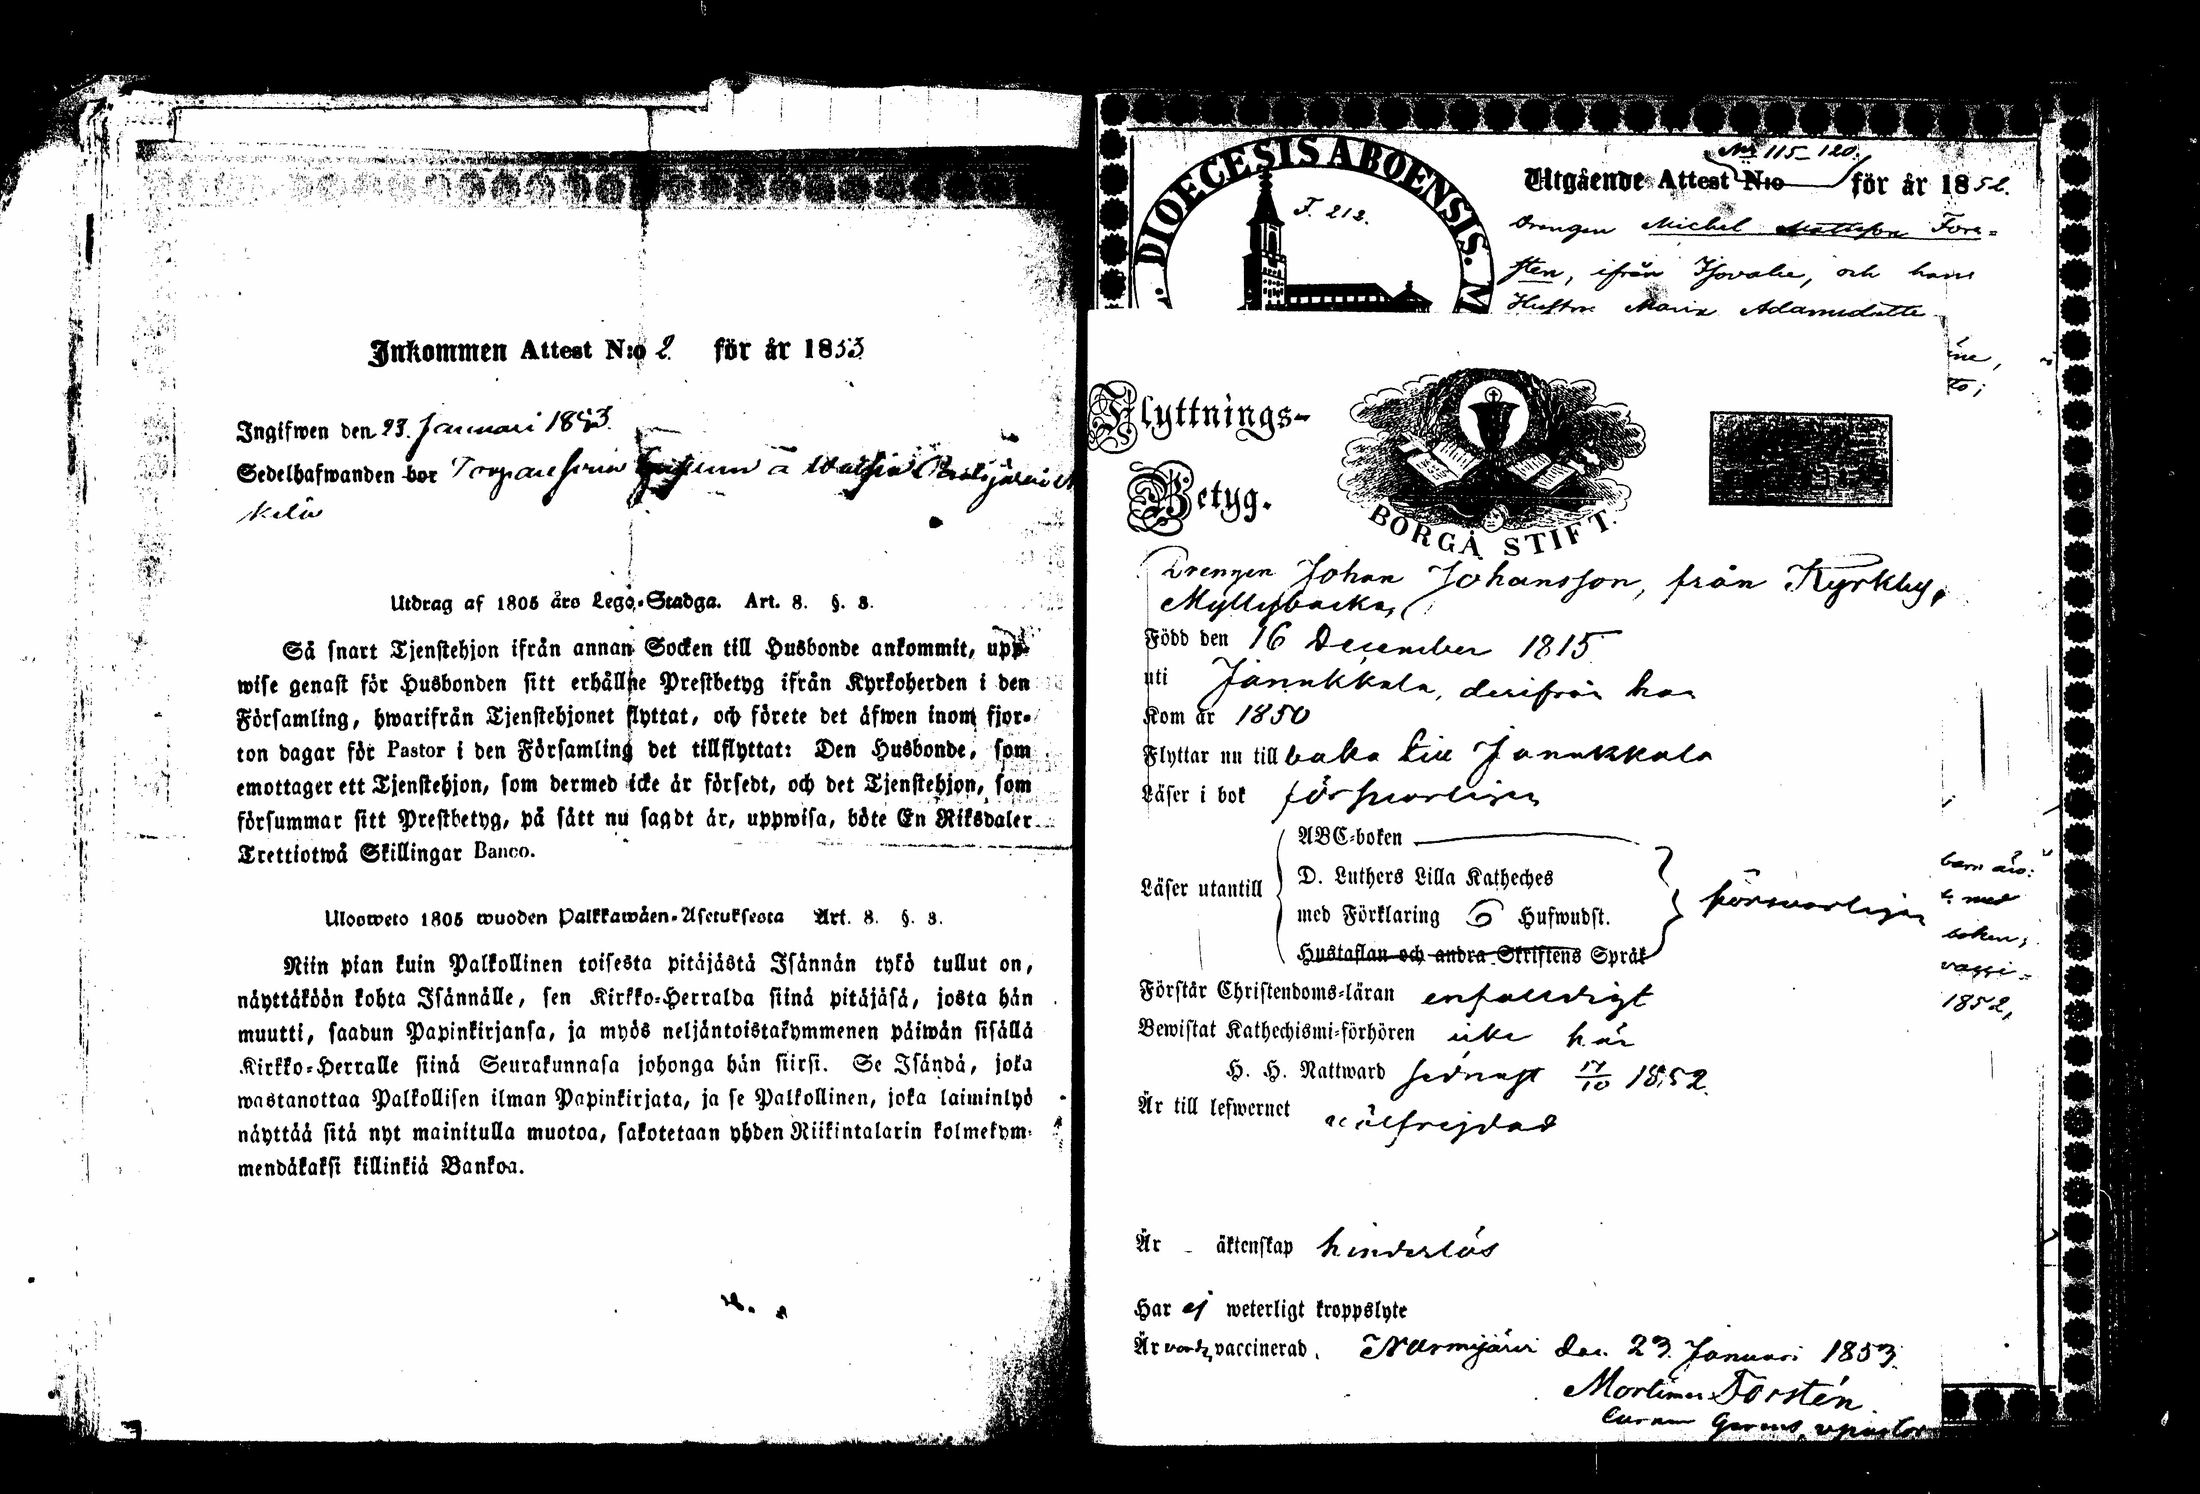 Inkommen Attest N:o 2. för år 1853
Ingifwen den 23. Januari 1853.
Sedelhafwanden bor
Utdrag af 1805 års Lego-Stadga. Art. 8. §. 3.
Så snart Tjenstehjon ifrån annan Socken till Husbonde ankommit, upp-
wise genast för Husbonden sitt erhållne Prestbetyg ifrån Kyrkoherden i den
Församling, hwarifrån Tjenstehjonet flyttat, och förete det äfwen inom fjor-
ton dagar för Pastor i den Församling det tillflyttat: Den Husbonde, som
emottager ett Tjenstehjon, som dermed icke är försedt, och det Tjenstehjon, som
försummar sitt Prestbetyg, på sätt nu sagdt är, uppwisa, böte En Riksdaler
Trettiotwå Skillingar Banco.
Ulosweto 1805 wuoden Palkkawäen-Asetuksesta Art. 8. §. 3.
Niin pian kuin Palkollinen toisesta pitäjästä Isännän tykö tullut on,
näyttäköön kohta Isännälle, sen Kirkko-Herralda siinä pitäjäsä, josta hän
muutti, saadun Papinkirjansa, ja myös neljäntoistakymmenen päiwän sisällä
Kirkko-Herralle siinä Seurakunnasa johonga hän siirsi. Se Isändä, joka
wastanottaa Palkollisen ilman Papinkirjata, ja se Palkollinen, joka laiminlyö
näyttää sitä nyt mainitulla muotoa, sakotetaan yhden Riikintalarin kolmekym-
mendäkaksi killinkiä Bankoa.
DIOECESIS ABOENSIS. M
T. 213.
No 115-120.
Utgående Attest N:o för år 1852.
Drengen Michel Mattsson Fors-
sten, ifrån och hans
Hustru Maria Adamsdotter
Flyttnings-
Betyg.
BORGÅ STIFT.
Drengen Johan Johansson, från Kyrkby,
Myllybacka,
Född den 16 December 1815
uti Janakkala, derifrån han
Kom år 1850
Flyttar nu till baka till Janakkala
Läser i bok försvarligen
Läser utantill
ABC-boken
D. Luthers Lilla Katheches
med Förklaring 6 Hufwudst.
Hustaflan och andra Skriftens Språk
försvarligen
Förstår Christendoms-läran enfaldigt
Bewistat Kathechismi-förhören icke här
H. H. Nattward sednast 17/10 1852.
Är till lefwernet wälfrejdad
Är äktenskap hinderlös
Har ej weterligt kroppslyte
Är vaccinerad. Nurmijärvi den 23. Januari 1853.
Mortimer Forstén
barn äro:
med
boken;
vacci-
1852,